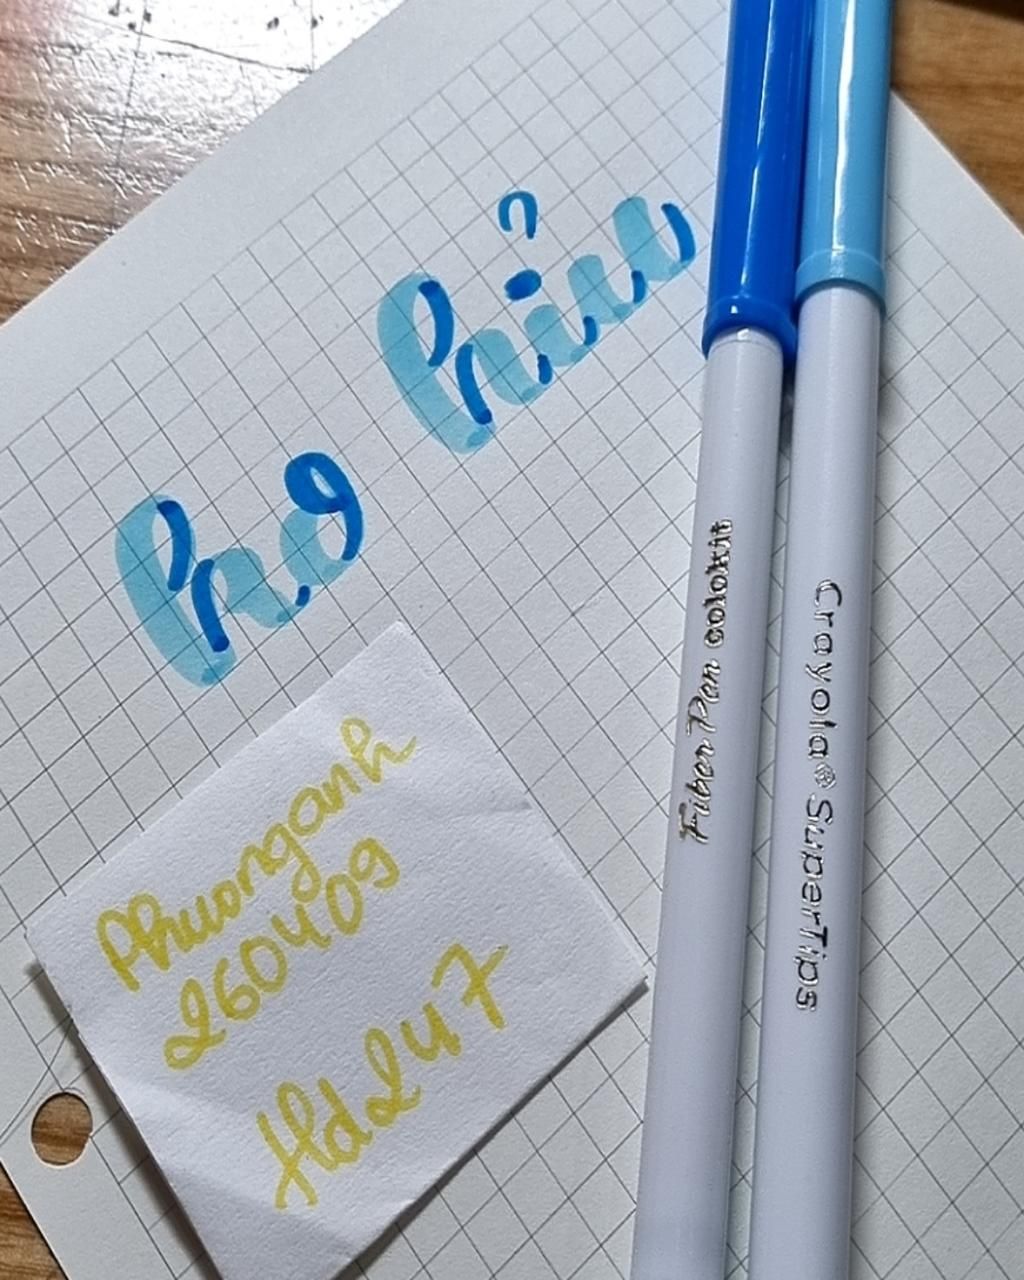 ho hỉu
Phuonganh
260409
Hd247
Fiber Pen colokit
Crayola® SuperTips